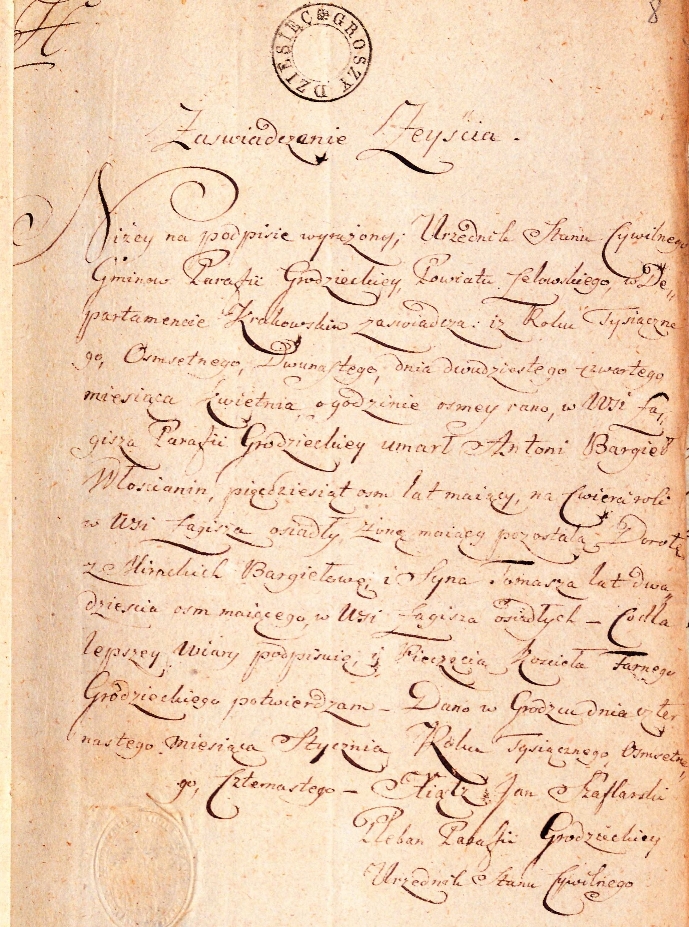 8
DZIESIĘC GROSZY
Zaswiadczenie Zeyścia.
Niżey na podpisie wyrażony, Urzędnik Stanu Cywilnego
Gminow Parafii Grodzieckiey Powiatu Lelowskiego, w De„
partamencie Krakowskim zaswiadcza: iz Roku Tysiączne
go, Osmsetnego, Dwunastego, dnia dwudziestego czwartego
miesiąca Kwietnia, o godzinie osmey rano, w Wsi Ła„
gisza Parafii Grodzieckiey umarł Antoni Bargieł
Włoscianin, pięcdziesiąt osm lat maiący, na cwierci roli
w Wsi Łagisza osiadły, żonę maiący pozostałą Dorotę
z Bargiełowę, i Syna Tomasza lat dwa„
dziescia osm maiącego, w Wsi Łagisza osiadłych – Co dla
lepszey Wiary podpisuię, i Pieczęcią Koscioła Farnego
Grodzieckiego potwierdzam – Dano w Grodzcu dnia czter
nastego miesiąca Stycznia, Roku Tysiącznego, Osmsetne„
go, Czternastego – Xiądz Jan Szaflarski
Pleban Parafii Grodzieckiey
Urzędnik Stanu Cywilnego